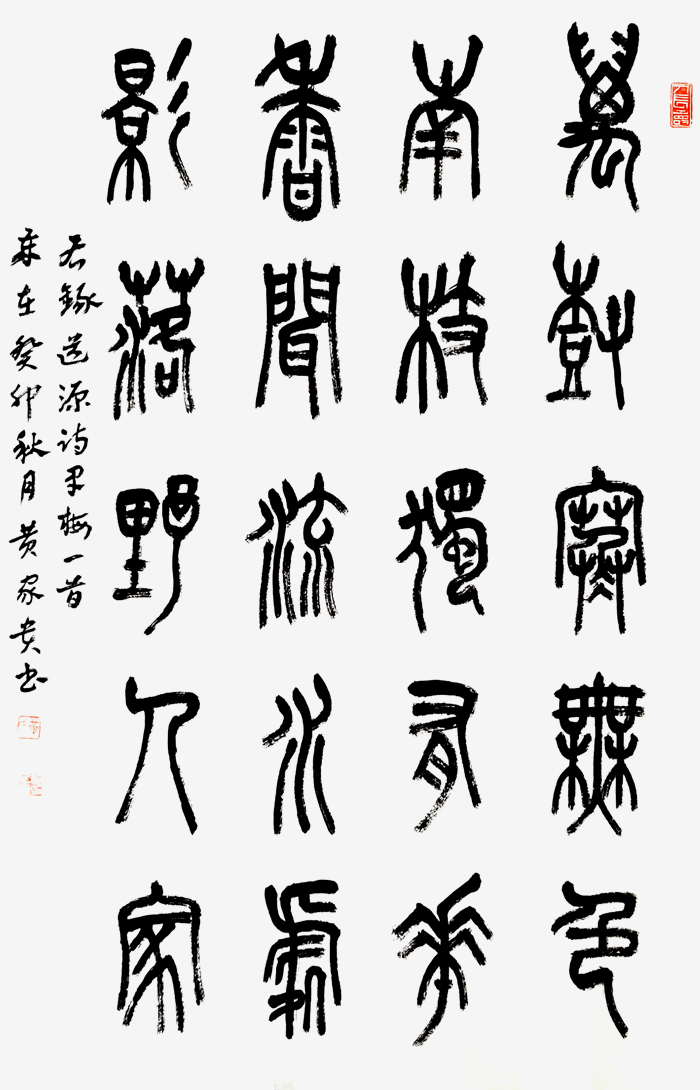 萬樹寒無色
南枝獨有花
香聞流水處
影落野人家
右錄道源詩早梅一首
歲在癸卯秋月黃家貴書